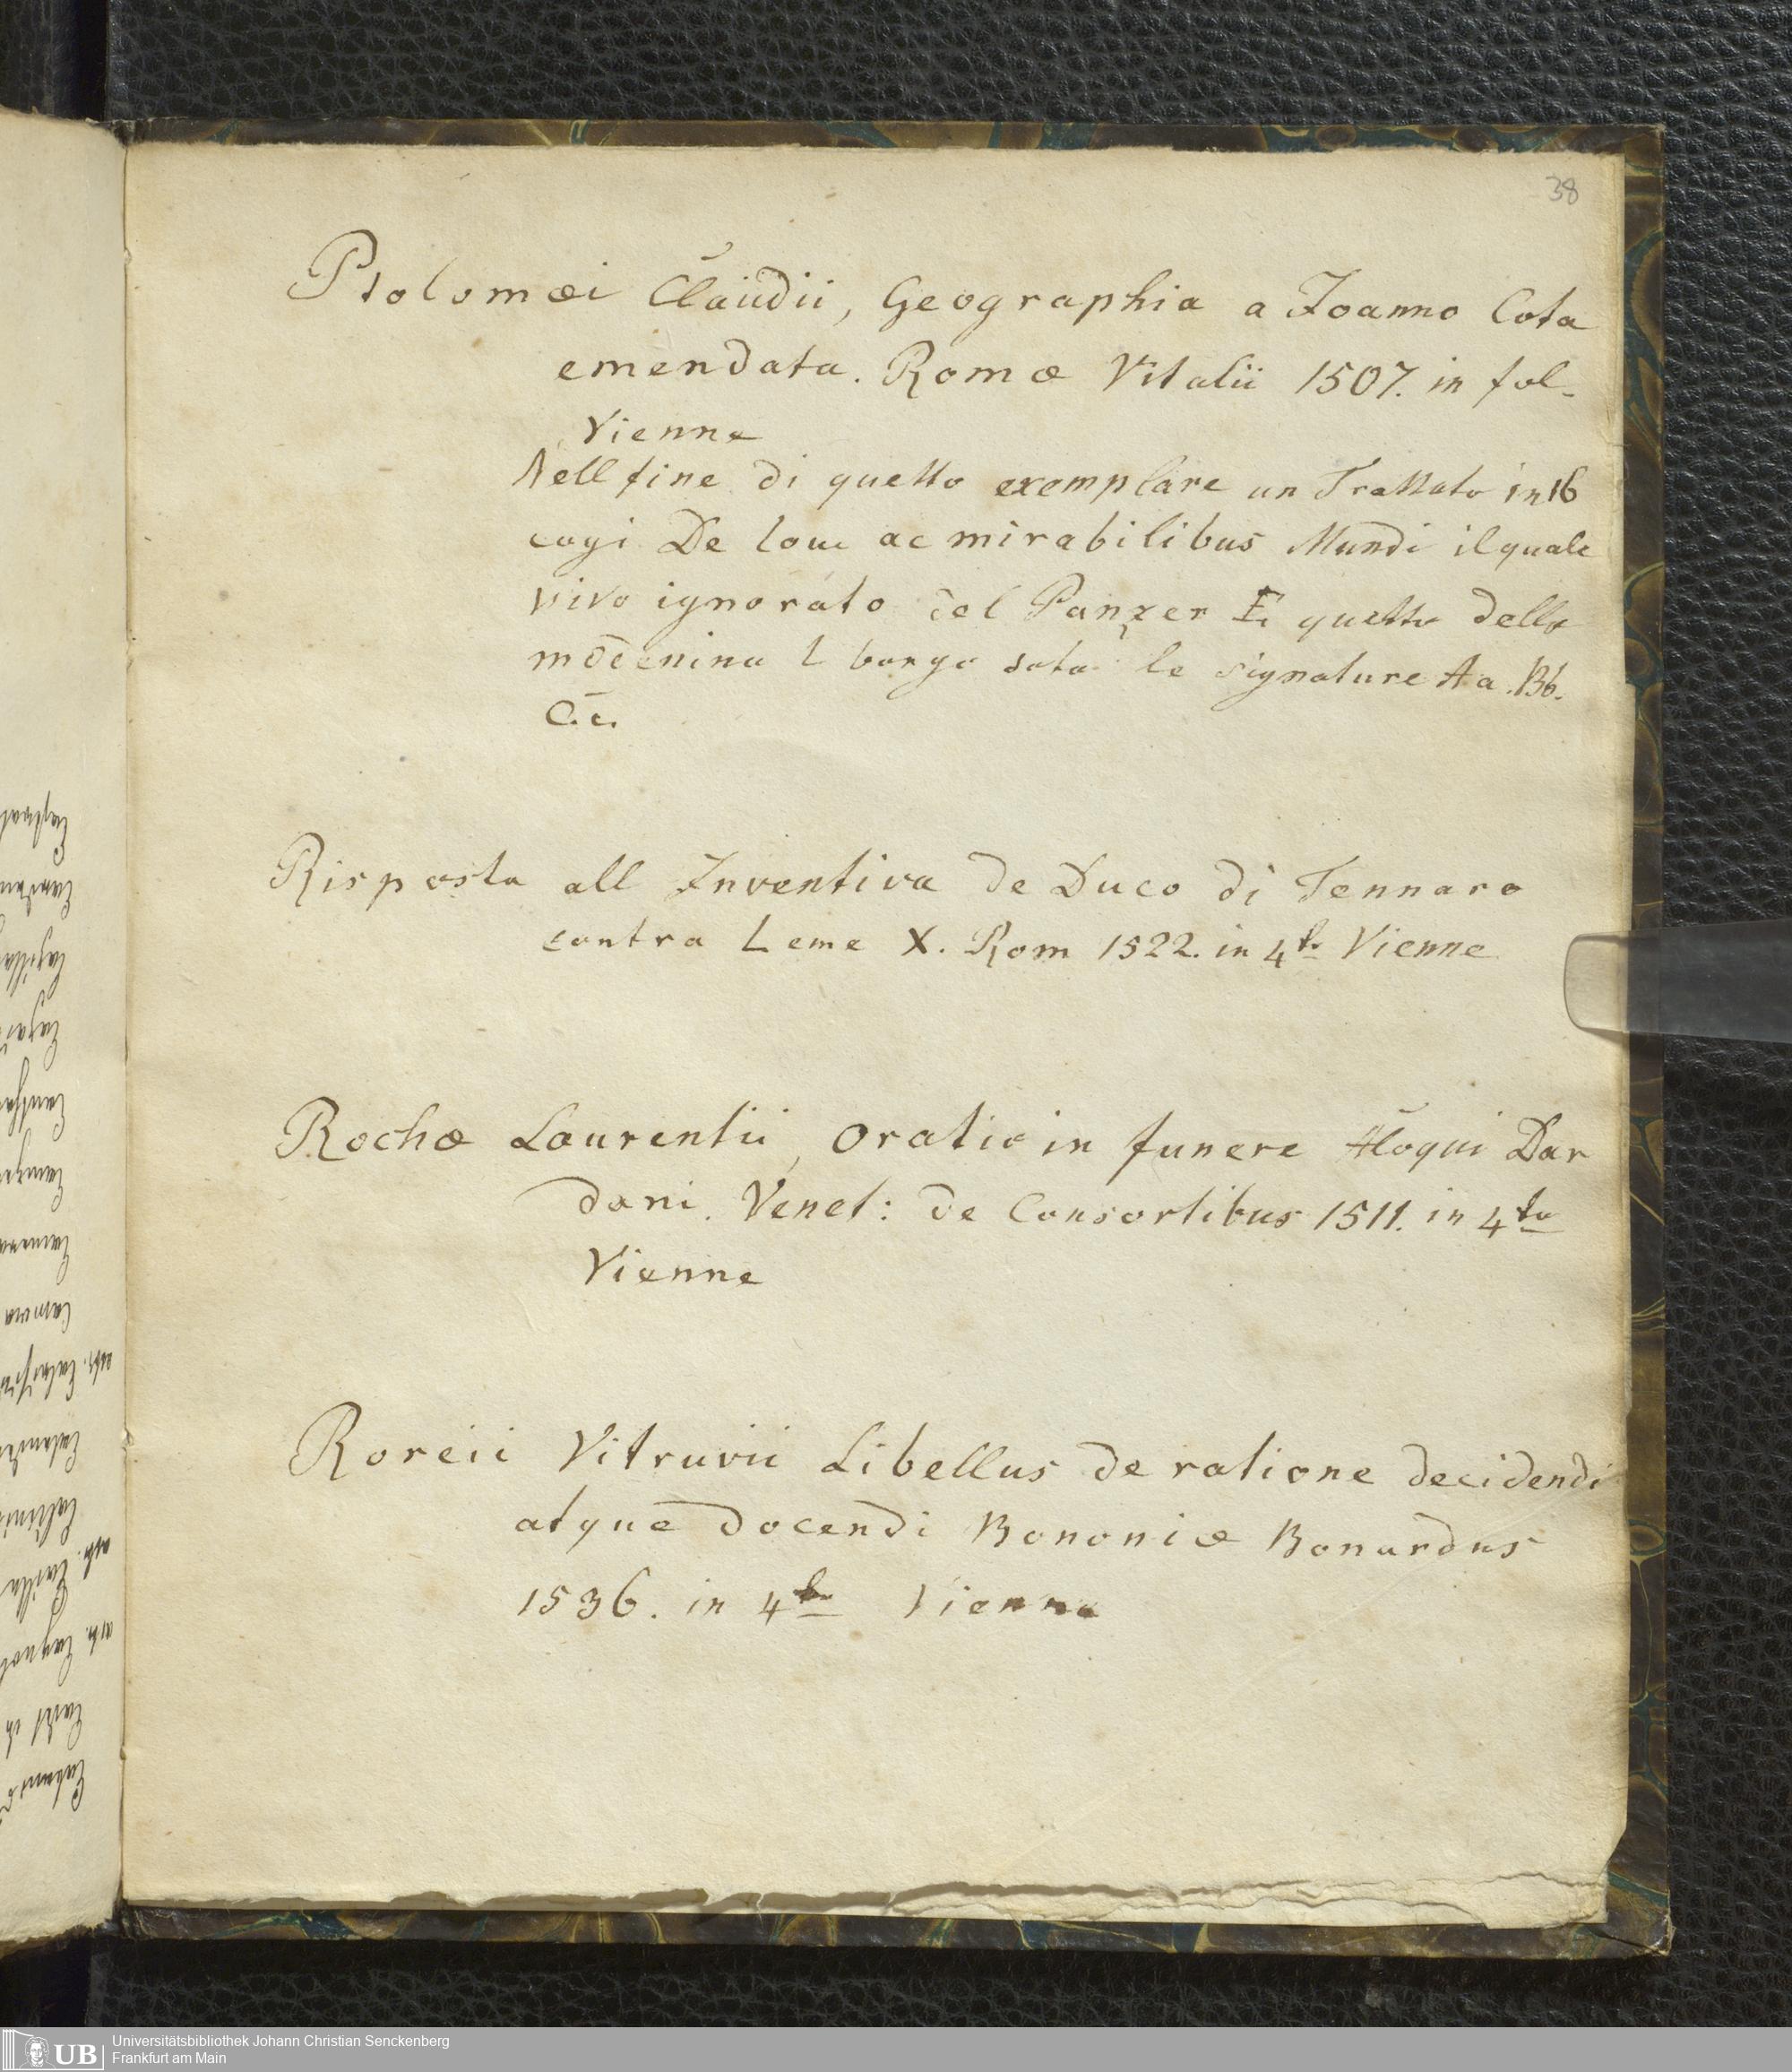 38
Ptolomæi Claudii, Geographia a Joanno Cota
emendata. Romæ Vitalii 1507. in fol.
Vienne
Nell fine di questo exemplare un Trattato in 16
De ac mirabilibus Mundi il quale
vivo ignorato del Panzer E questo dello
le signature Aa. Bb.
C.c.
Risposta all Inventiva de Duco di Tennaro
contra Leme X. Rom 1522. in 4to Vienne
Rochæ Laurentii, Oratio in funere Aloqui Dar
dani. Venet: de Consortibus 1511. in 4to
Vienne
Roreii Vitruvii Libellus de ratione decidendi
atque docendi Bononiæ Bonardus
1536. in 4to Vienne
UB
Universitätsbibliothek Johann Christian Senckenberg
Frankfurt am Main